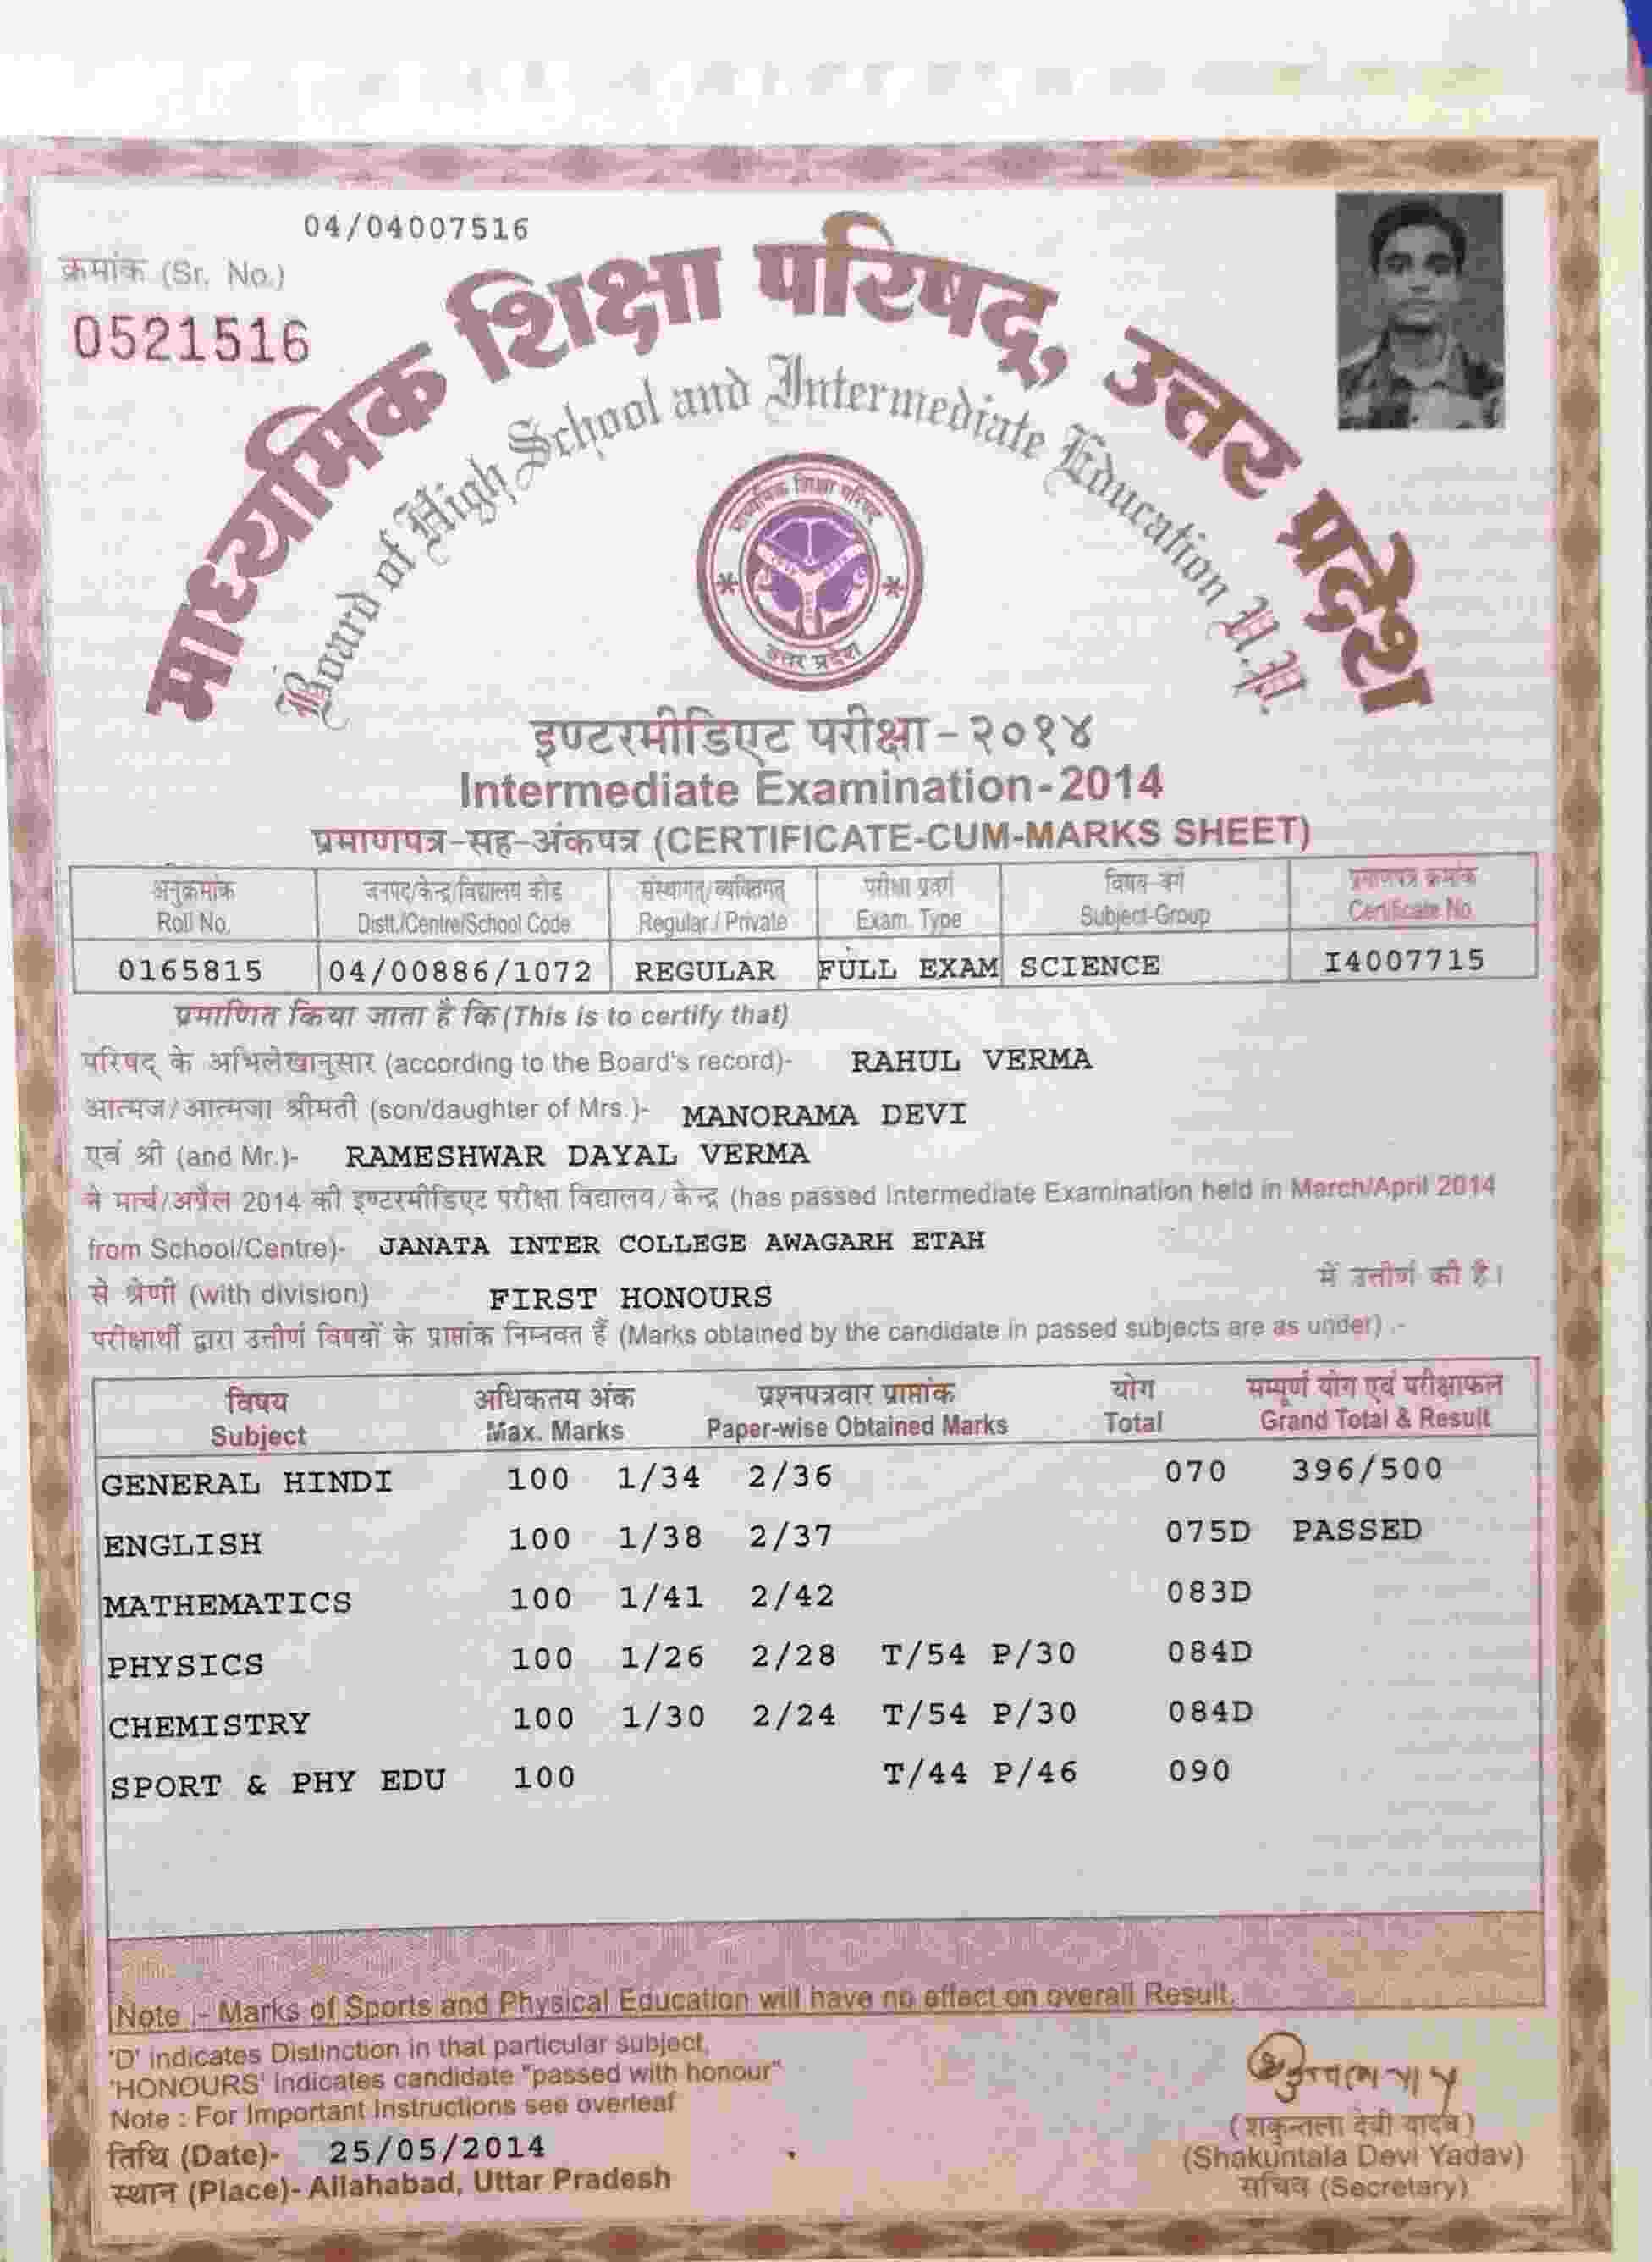 04/04007516
क्रमांक (Sr. No.)
0521516
माध्यमिक शिक्षा परिषद्, उत्तर प्रदेश
Board of High School and Intermediate Education U.P.
माध्यमिक शिक्षा परिषद्
उत्तर प्रदेश
इण्टरमीडिएट परीक्षा-२०१४
Intermediate Examination-2014
प्रमाणपत्र-सह-अंकपत्र (CERTIFICATE-CUM-MARKS SHEET)
अनुक्रमांक जनपद/केन्द्र/विद्यालय कोड संस्थागत/व्यक्तिगत परीक्षा प्रवर्ग विषय-वर्ग प्रमाणपत्र क्रमांक
Roll No. Distt./Centre/School Code Regular / Private Exam. Type Subject-Group Certificate No.
0165815 04/00886/1072 REGULAR FULL EXAM SCIENCE I4007715
प्रमाणित किया जाता है कि (This is to certify that)
परिषद् के अभिलेखानुसार (according to the Board's record)- RAHUL VERMA
आत्मज/आत्मजा श्रीमती (son/daughter of Mrs.)- MANORAMA DEVI
एवं श्री (and Mr.)- RAMESHWAR DAYAL VERMA
ने मार्च/अप्रैल 2014 की इण्टरमीडिएट परीक्षा विद्यालय/केन्द्र (has passed Intermediate Examination held in March/April 2014
from School/Centre)- JANATA INTER COLLEGE AWAGARH ETAH
से श्रेणी (with division) FIRST HONOURS में उत्तीर्ण की है।
परीक्षार्थी द्वारा उत्तीर्ण विषयों के प्राप्तांक निम्नवत हैं (Marks obtained by the candidate in passed subjects are as under) :-
विषय अधिकतम अंक प्रश्नपत्रवार प्राप्तांक योग सम्पूर्ण योग एवं परीक्षाफल
Subject Max. Marks Paper-wise Obtained Marks Total Grand Total & Result
GENERAL HINDI 100 1/34 2/36 070 396/500
ENGLISH 100 1/38 2/37 075D PASSED
MATHEMATICS 100 1/41 2/42 083D
PHYSICS 100 1/26 2/28 T/54 P/30 084D
CHEMISTRY 100 1/30 2/24 T/54 P/30 084D
SPORT & PHY EDU 100 T/44 P/46 090
Note :- Marks of Sports and Physical Education will have no effect on overall Result.
'D' indicates Distinction in that particular subject,
'HONOURS' indicates candidate "passed with honour"
Note : For Important Instructions see overleaf
तिथि (Date)- 25/05/2014
स्थान (Place)- Allahabad, Uttar Pradesh
(शकुन्तला देवी यादव)
(Shakuntala Devi Yadav)
सचिव (Secretary)